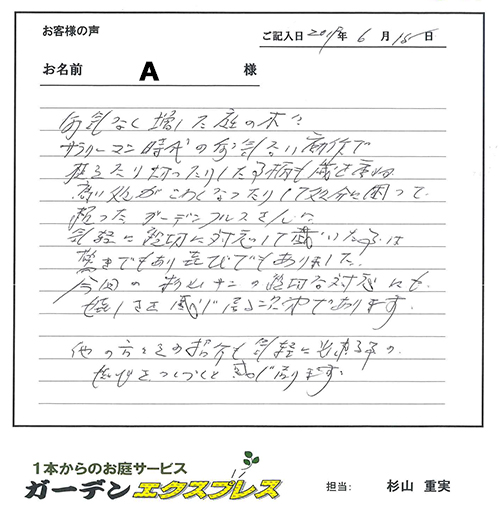 お客様の声
ご記入日 2019年 6月 15日
お名前 A 様
何気なく増した庭の木々
サラリーマン時代の何気ない動作で
切ったりした事柄も歳を重ね
高い処がこわくなったりして処分に困って
ガーデンプルスさんに
気軽に親切に対応して戴いた事は
驚きでもあり喜びでもありました。
今回の杉山サンの親切な対応にも
嬉しさを感じ居る次第であります。
他の方々にも気軽に出来る事の
喜びをつくづくと感じ居ります。
1本からのお庭サービス
ガーデンエクスプレス
担当: 杉山 重実